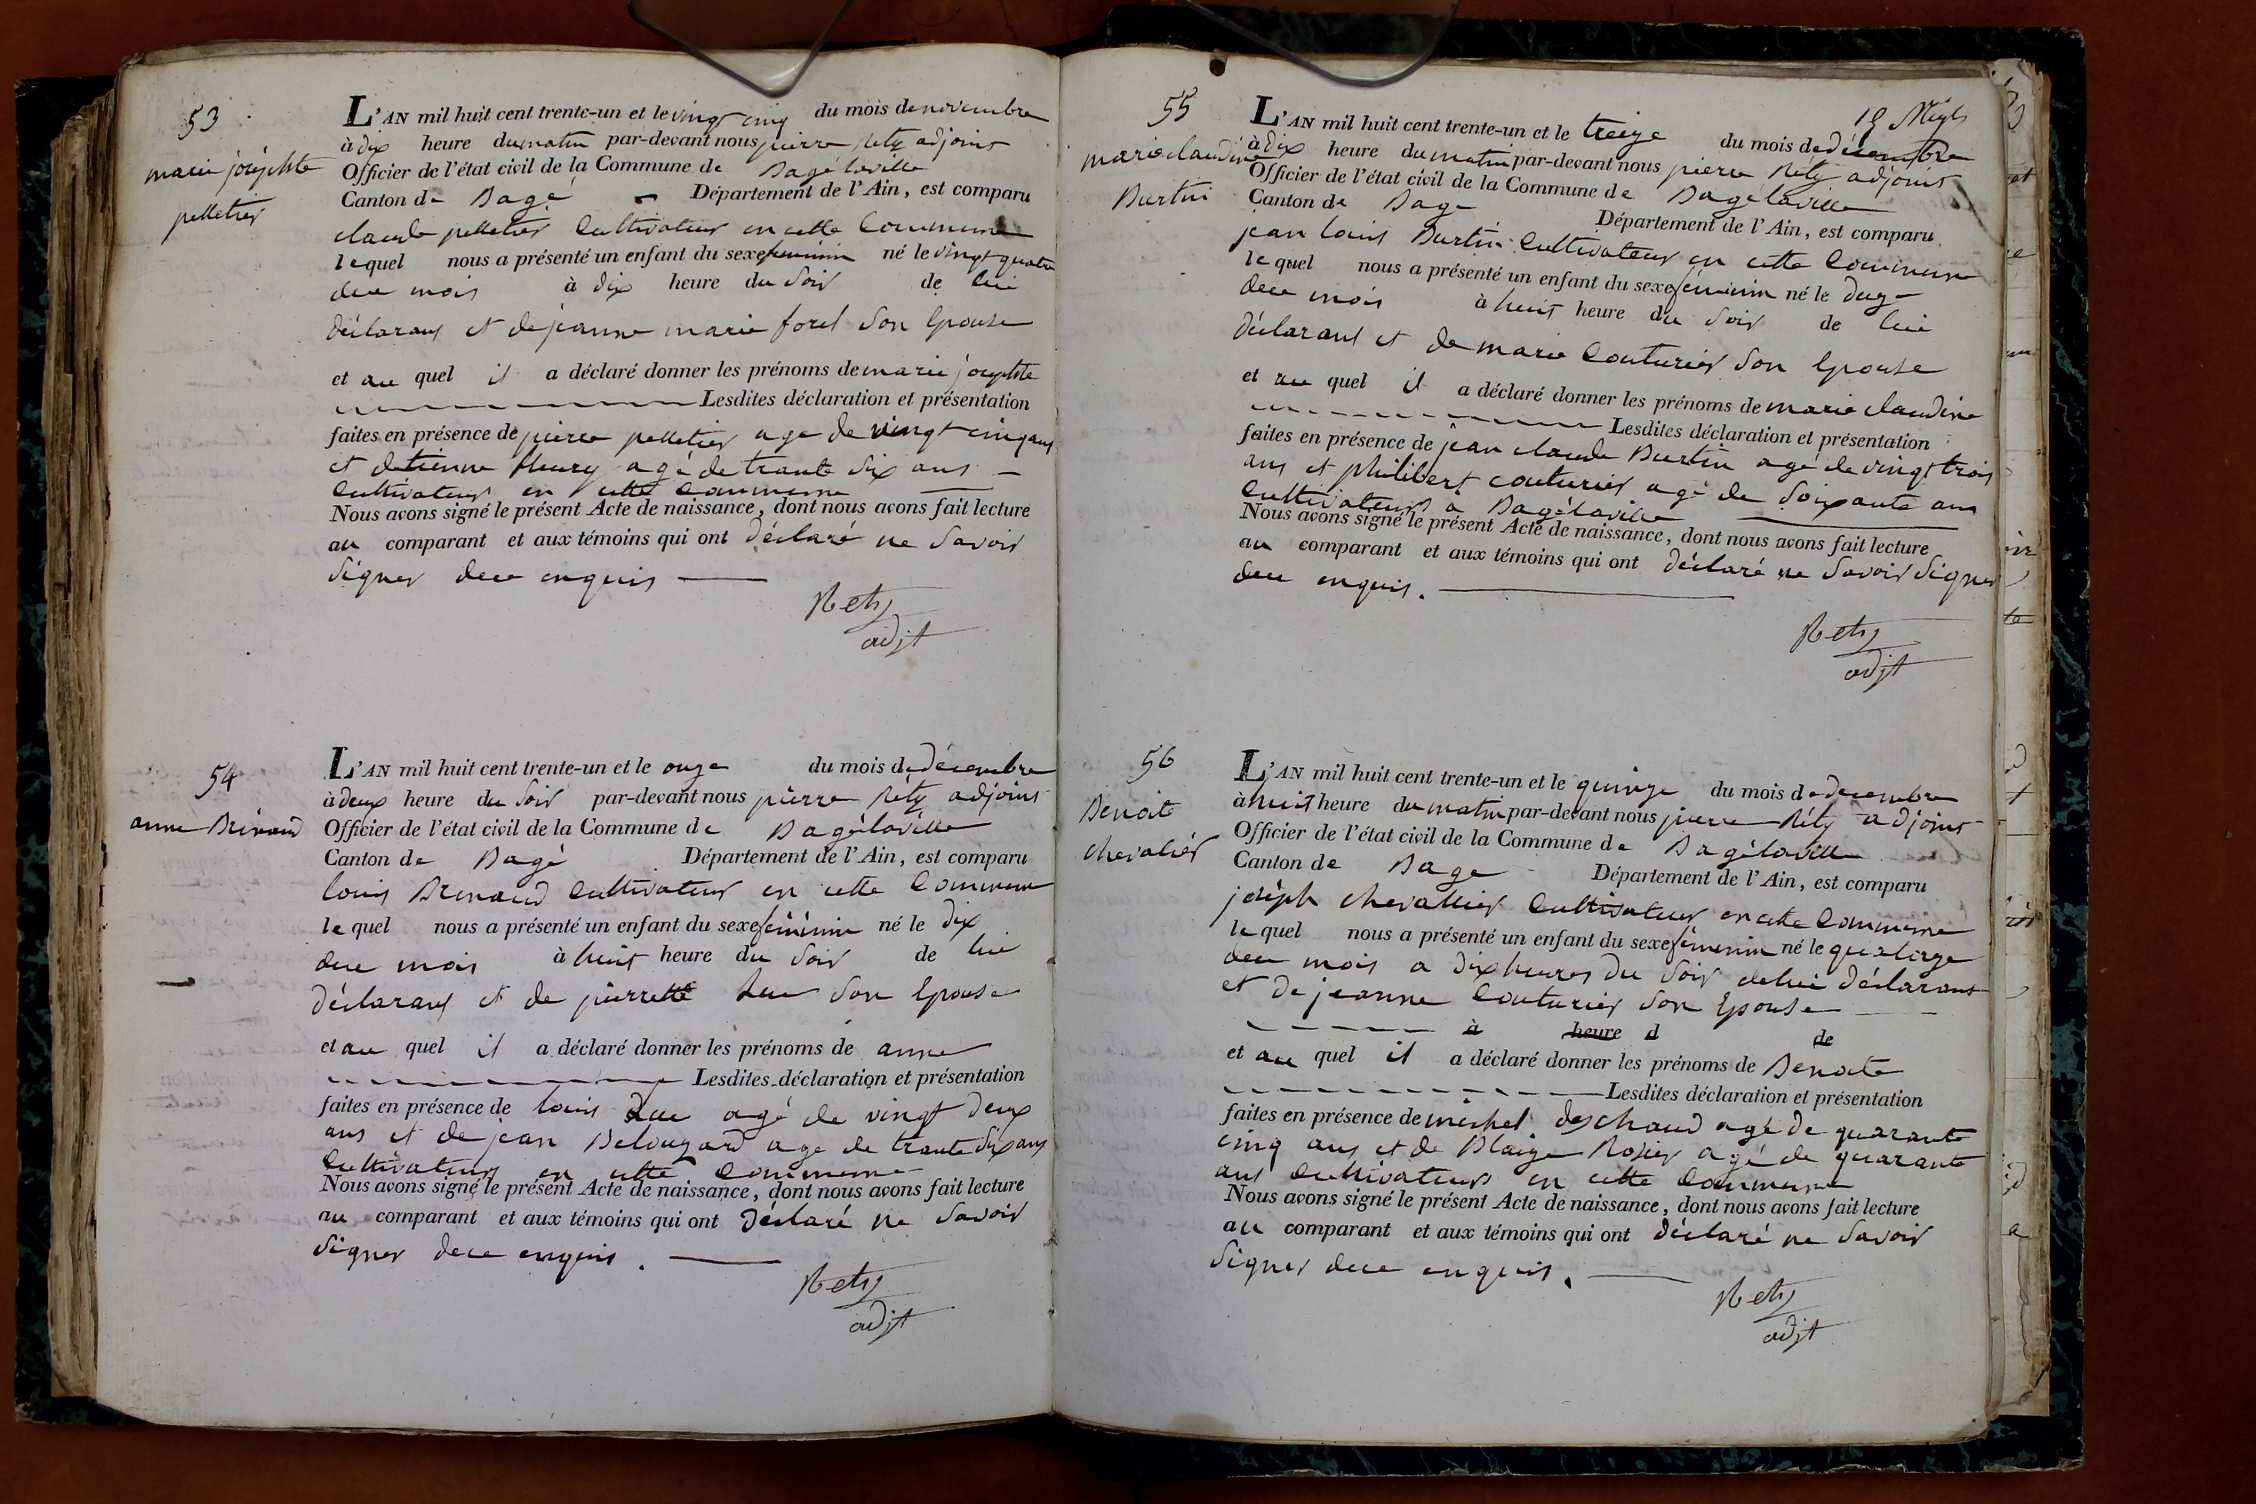 53
marie joséphte
pelletier
L'AN mil huit cent trente-un et le vingt cinq du mois de novembre
à dix heure du matin par-devant nous pierre Réty adjoint
Officier de l'état civil de la Commune de Bagélaville
Canton de Bagé Département de l'Ain, est comparu
claude pelletier Cultivateur en cette Commune
lequel nous a présenté un enfant du sexe féminin né le vingt quatre
due mois à dix heure du soir de lui
déclarant et de jeanne marie forel son Epouse
et au quel il a déclaré donner les prénoms de marie joséphte
Lesdites déclaration et présentation
faites en présence de pierre pelletier agé de vingt cinq ans
et detienne fleury agé de trante six ans
Cultivateurs en cette Commune
Nous avons signé le présent Acte de naissance, dont nous avons fait lecture
au comparant et aux témoins qui ont déclaré ne savoir
signer dece enquis
Rety
adjt
54
anne Brenaud
L'AN mil huit cent trente-un et le onze du mois de décembre
à deux heure du soir par-devant nous pierre Réty adjoint
Officier de l'état civil de la Commune de Bagélaville
Canton de Bagé Département de l'Ain, est comparu
louis Brenaud Cultivateur en cette Commune
lequel nous a présenté un enfant du sexe féminin né le dix
due mois à huit heure du soir de lui
déclarant et de pierrette son Epouse
et au quel il a déclaré donner les prénoms de anne
Lesdites déclaration et présentation
faites en présence de louis agé de vingt deux
ans et de jean Belouzard age de trante six ans
Cultivateurs en cette Commune
Nous avons signé le présent Acte de naissance, dont nous avons fait lecture
au comparant et aux témoins qui ont déclaré ne savoir
signer dece enquis.
Rety
adjt
55
marie claudine
Burtin
L'AN mil huit cent trente-un et le treize du mois de décembre
à dix heure du matin par-devant nous pierre Réty adjoint
Officier de l'état civil de la Commune de Bagélaville
Canton de Bage Département de l'Ain, est comparu
jean louis Burtin Cultivateur en cette Commune
lequel nous a présenté un enfant du sexe féminin né le duze
due mois à huit heure du soir de lui
déclarant et de marie Couturier son Epouse
et au quel il a déclaré donner les prénoms de marie claudine
Lesdites déclaration et présentation
faites en présence de jean claude Burtin agé de vingt trois
ans et philibert couturier agé de soixante ans
Cultivateurs à Bagélaville
Nous avons signé le présent Acte de naissance, dont nous avons fait lecture
au comparant et aux témoins qui ont déclaré ne savoir signer
dece enquis.
Rety
adjt
56
Benoite
chevalier
L'AN mil huit cent trente-un et le quinze du mois de decembre
à huit heure du matin par-devant nous pierre Réty adjoint
Officier de l'état civil de la Commune de Bagélaville
Canton de Bage Département de l'Ain, est comparu
joseph chevallier Cultivateur en cette Commune
lequel nous a présenté un enfant du sexe féminin né le quatorze
due mois a dix heures du soir de lui déclarant
et de jeanne Couturier son Epouse
à heure d de
et au quel il a déclaré donner les prénoms de Benoite
Lesdites déclaration et présentation
faites en présence de michel deschaud agé de quarante
cinq ans et de Blaize Rosier agé de quarante
ans Cultivateurs en cette Commune
Nous avons signé le présent Acte de naissance, dont nous avons fait lecture
au comparant et aux témoins qui ont déclaré ne savoir
signer dece enquis.
Rety
adjt